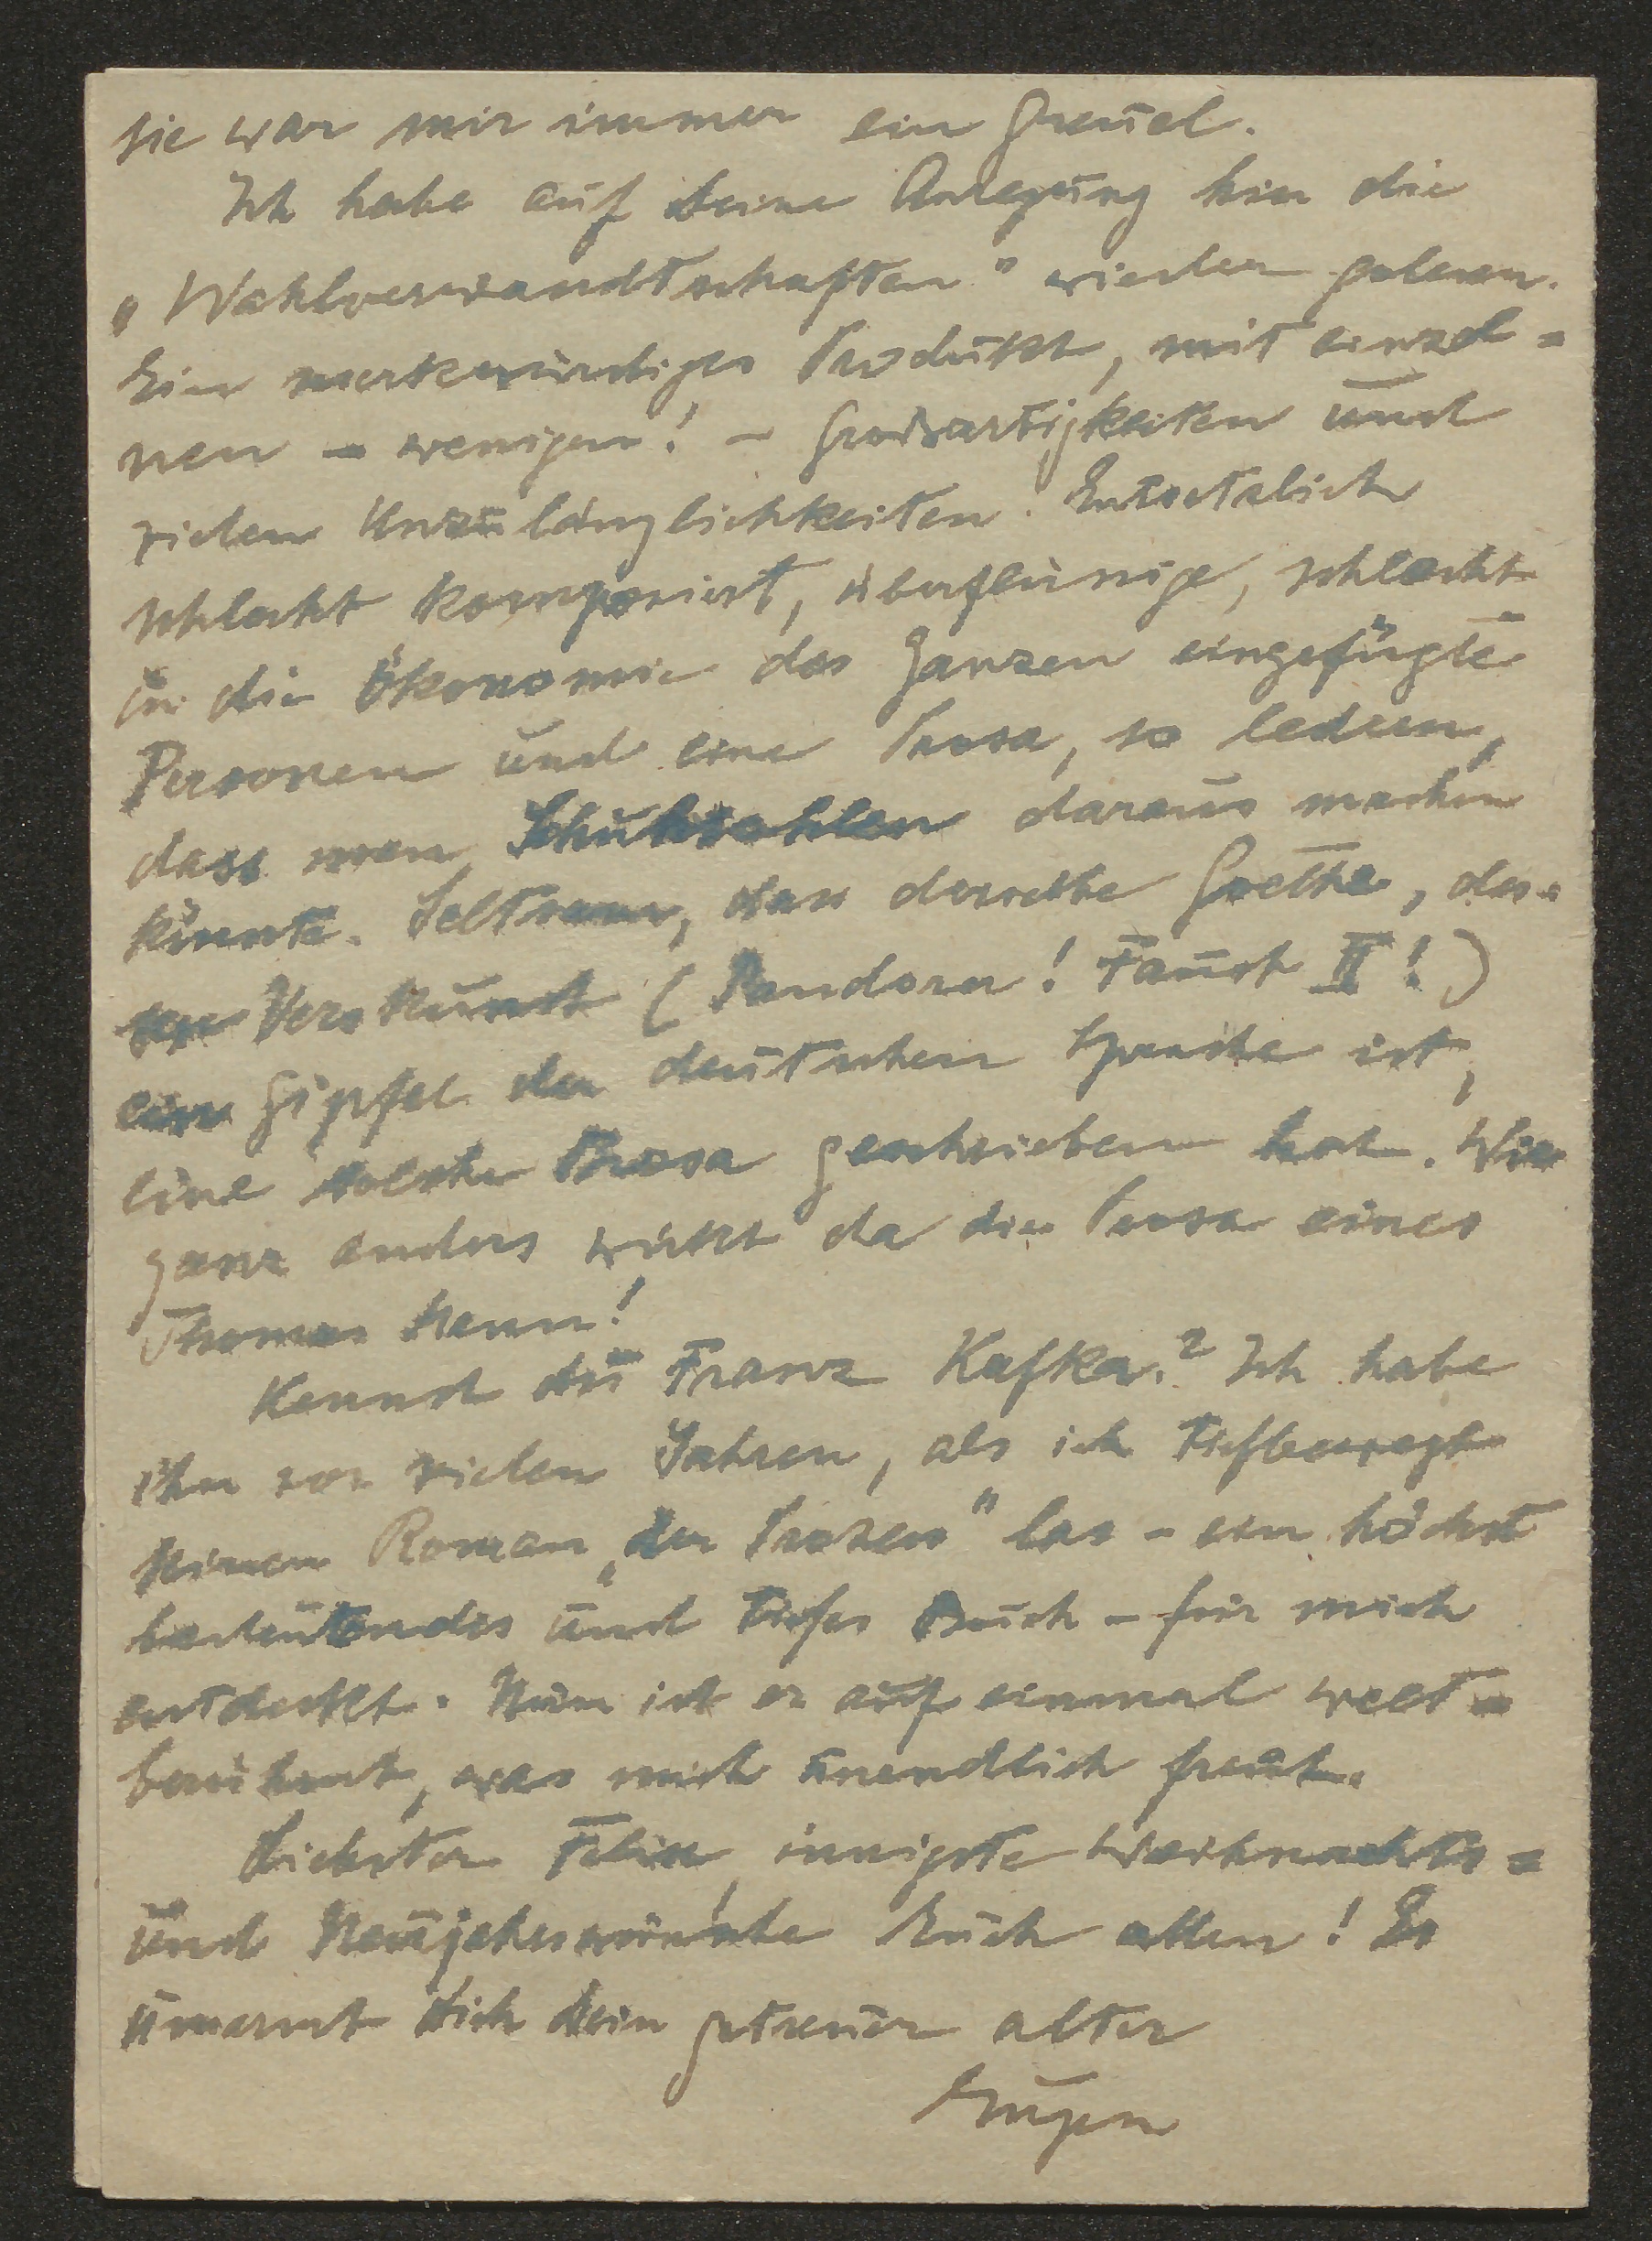 sie war mir immer ein Greuel.
Ich habe auf deine Anregung hin die
„Wahlverwandtschaften" wieder gelesen.
Ein merkwürdiges Produkt, mit einzel=
nen – wenigen! – Großartigkeiten und
vielen Unzulänglichkeiten. Entsetzlich
schlecht komponiert, überflüssige, schlecht
in die Ökonomie des Ganzen eingefügte
Personen und eine Prosa, so ledern,
dass man Schuhsohlen daraus machen
könnte. Seltsam, dass derselbe Goethe, des=
sen Verskunst (Pandora! Faust II!)
ein Gipfel der deutschen Sprache ist,
eine solche Prosa geschrieben hat. Wie
ganz anders wirkt da die Prosa eines
Thomas Mann!
Kennst du Franz Kafka? Ich habe
ihn vor vielen Jahren, als ich tiefbewegt
seinen Roman „der Prozess" las – ein höchst
bedeutendes und tiefes Buch – für mich
entdeckt. Nun ist er auf einmal welt=
berühmt, was mich unendlich freut.
Liebster Felix, innigste Weihnachts=
und Neujahrswünsche Euch allen! Es
umarmt dich dein getreuer alter
Eugen